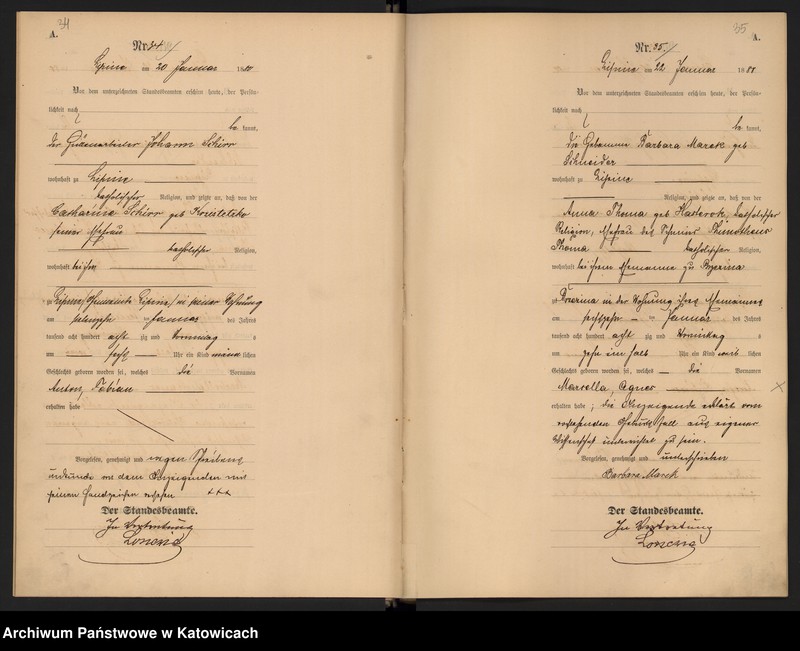 34
A.
Nr. 34
am 20 Januar 18
Vor dem unterzeichneten Standesbeamten erschien heute, der Persön-
lichkeit nach
be kannt,
der Johann Schirr
wohnhaft zu Lipine
katholischer Religion, und zeigte an, daß von der
Catharina Schirr geb
seiner Ehefrau
katholischer Religion,
wohnhaft bei ihm
zu Lipine, Gemeinde Lipine, in seiner Wohnung
am Januar des Jahres
tausend acht hundert acht zig und Vormittag s
um sechs Uhr ein Kind männlichen
Geschlechts geboren worden sei, welches die Vornamen
Anton, Fabian
erhalten habe
Vorgelesen, genehmigt und wegen
von dem Anzeigenden mit
seinen Handzeichen versehen +++
Der Standesbeamte.
In Vertretung
35
A.
Nr. 35.
Lipine am 22 Januar 188
Vor dem unterzeichneten Standesbeamten erschien heute, der Persön-
lichkeit nach
be kannt,
die Hebamme Barbara Marek geb
Schneider
wohnhaft zu Lipine
Religion, und zeigte an, daß von der
Anna Thoma geb katholischer
Religion, Ehefrau des
Thoma katholischer Religion,
wohnhaft bei ihrem Ehemanne zu
in der Wohnung ihres Ehemannes
am sechszehn Januar des Jahres
tausend acht hundert acht zig und Vormittag s
um zehn ein halb Uhr ein Kind weib lichen
Geschlechts geboren worden sei, welches die Vornamen
Marcella, Agnes
erhalten habe; die Anzeigende erklärt vom
vorstehenden Geburtsfall aus eigener
Wissenschaft unterrichtet zu sein.
Vorgelesen, genehmigt und unterschrieben
Barbara Marek
Der Standesbeamte.
In Vertretung
Archiwum Państwowe w Katowicach